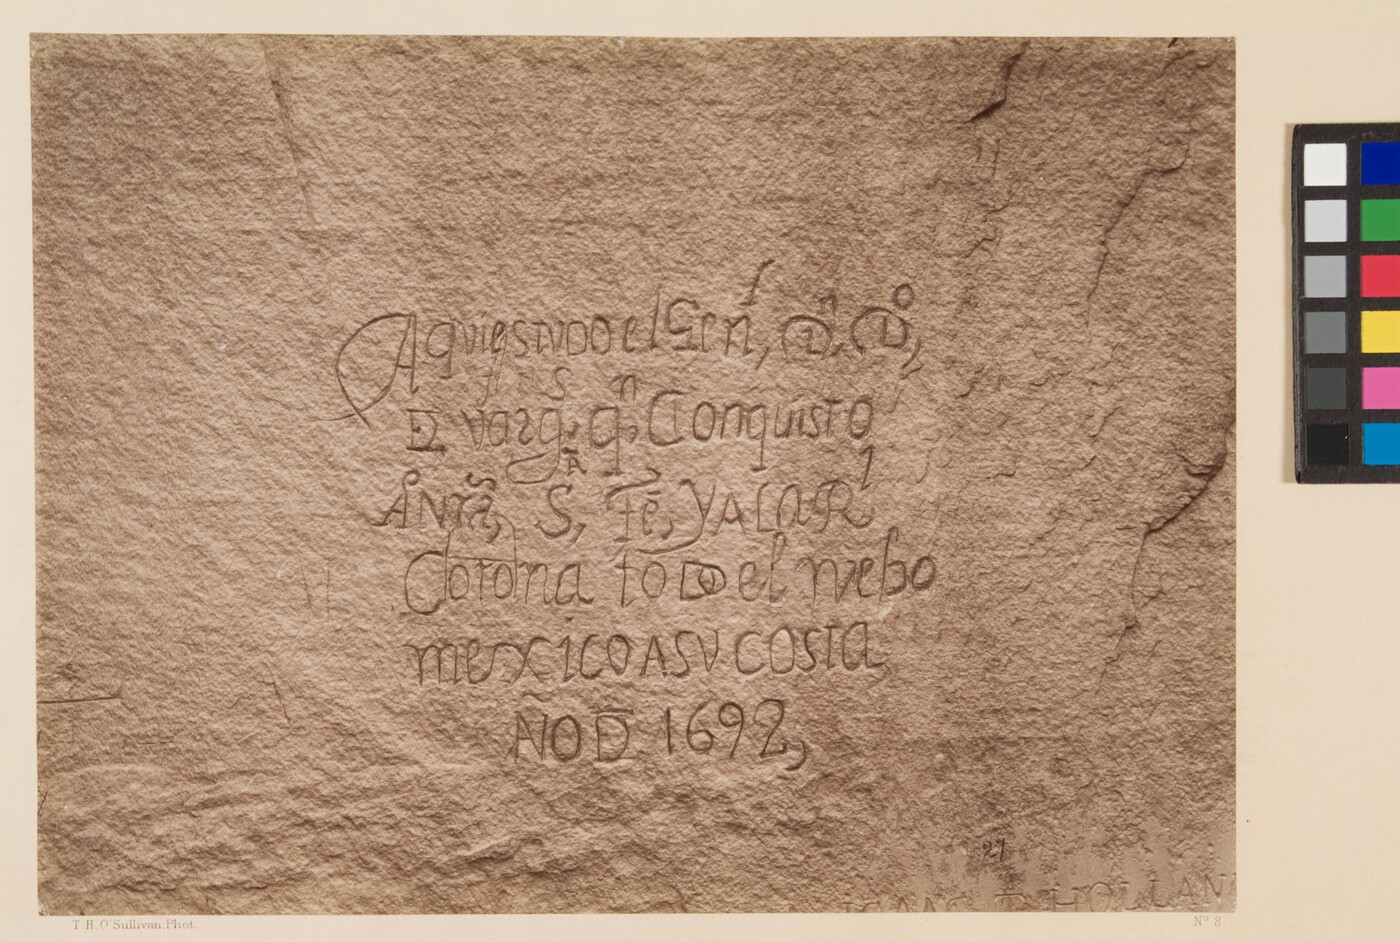 Aqui estvDo el Gen, D. Do,
De Vargs, qn Conquisto
A Nra, Sta, Fe, Y A La Rl
Corona toDo el nuebo
mexico ASV COSTA
ÑO D 1692,
27
ISAAC T. HOLLAN
T. H. O'Sullivan, Phot.
No. 8.